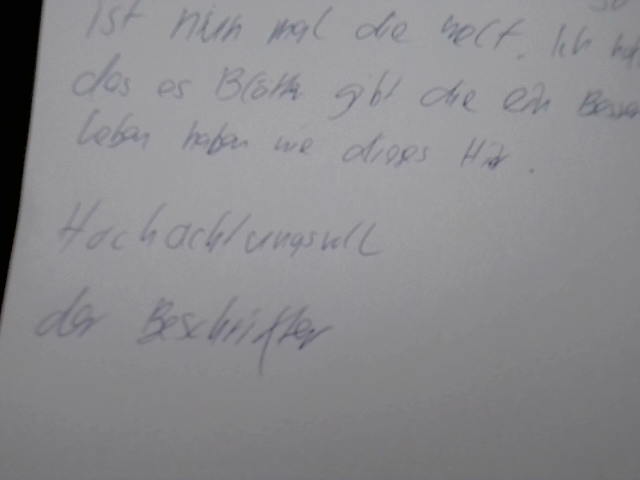 so
ist nun mal die welt. Ich
das es Blätter gibt die ein Besser
leben haben wie dieses Hir.
Hochachtungsvoll
der Beschrifter